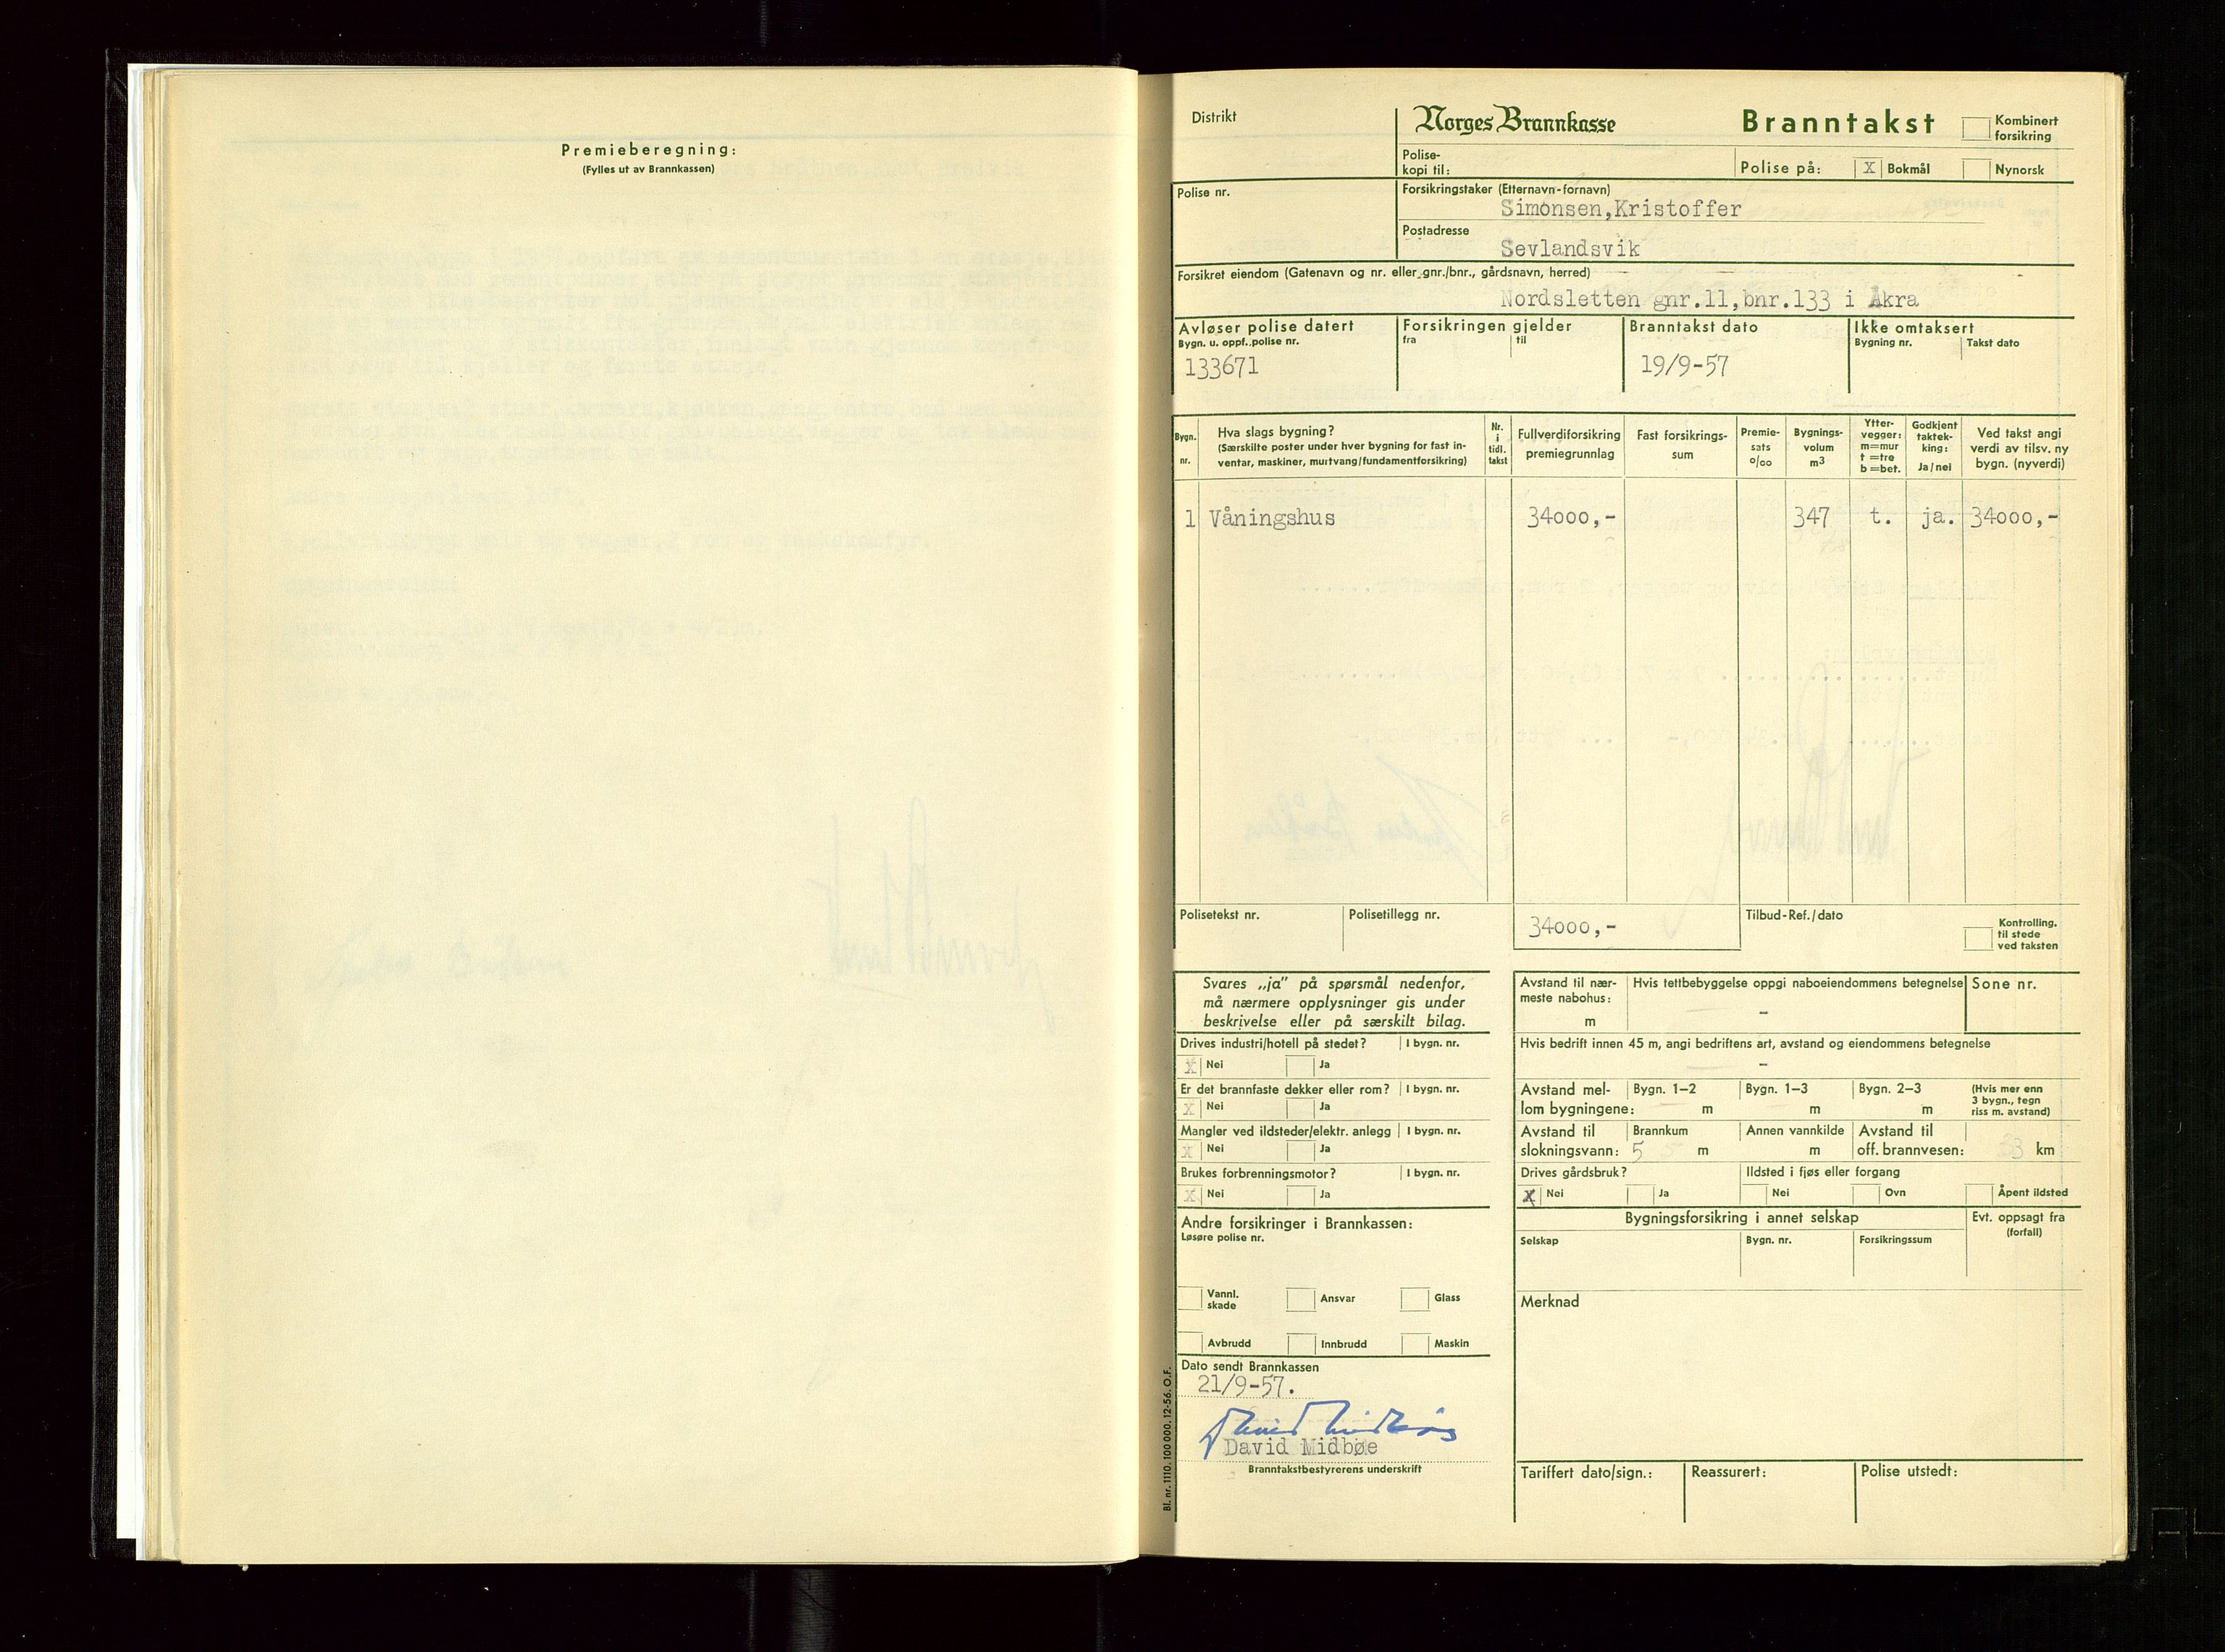 Premieberegning:
(Fylles ut av Brannkassen)
Distrikt
Norges Brannkasse
Branntakst
Kombinert
forsikring
Polise-
kopi til:
Polise på:
X Bokmål
Nynorsk
Polise nr.
Forsikringstaker (Etternavn-fornavn)
Simonsen,Kristoffer
Postadresse
Sevlandsvik
Forsikret eiendom (Gatenavn og nr. eller gnr./bnr., gårdsnavn, herred)
Nordsletten gnr.11,bnr.133 i Åkra
Avløser polise datert
Bygn. u. oppf. polise nr.
133671
Forsikringen gjelder
fra
til
Branntakst dato
19/9-57
Ikke omtaksert
Bygning nr.
Takst dato
Bygn.
nr.
Hva slags bygning?
(Særskilte poster under hver bygning for fast in-
ventar, maskiner, murtvang/fundamentforsikring)
Nr.
i
tidl.
takst
Fullverdiforsikring
premiegrunnlag
Fast forsikrings-
sum
Premie-
sats
o/oo
Bygnings-
volum
m3
Ytter-
vegger:
m=mur
t =tre
b=bet.
Godkjent
taktek-
king:
Ja/nei
Ved takst angi
verdi av tilsv. ny
bygn. (nyverdi)
1 Våningshus 34000,- 347 t. ja. 34000,-
Polisetekst nr.
Polisetillegg nr.
34000,-
Tilbud-Ref./dato
Kontrolling.
til stede
ved taksten
Svares „ja" på spørsmål nedenfor,
må nærmere opplysninger gis under
beskrivelse eller på særskilt bilag.
Drives industri/hotell på stedet? I bygn. nr.
X Nei Ja
Er det brannfaste dekker eller rom? I bygn. nr.
X Nei Ja
Mangler ved ildsteder/elektr. anlegg I bygn. nr.
X Nei Ja
Brukes forbrenningsmotor? I bygn. nr.
X Nei Ja
Andre forsikringer i Brannkassen:
Løsøre polise nr.
Vannl.
skade
Ansvar
Glass
Avbrudd
Innbrudd
Maskin
Dato sendt Brannkassen
21/9-57.
David Midbøe
David Midbøe
Branntakstbestyrerens underskrift
Bl. nr. 1110. 100 000. 12-56. O.F.
Avstand til nær-
meste nabohus:
m
Hvis tettbebyggelse oppgi naboeiendommens betegnelse
-
Sone nr.
Hvis bedrift innen 45 m, angi bedriftens art, avstand og eiendommens betegnelse
-
Avstand mel-
lom bygningene:
Bygn. 1-2
m
Bygn. 1-3
m
Bygn. 2-3
m
(Hvis mer enn
3 bygn., tegn
riss m. avstand)
Avstand til
slokningsvann:
Brannkum
5 m
Annen vannkilde
m
Avstand til
off. brannvesen:
km
Drives gårdsbruk?
X Nei Ja
Ildsted i fjøs eller forgang
Nei Ovn Åpent ildsted
Bygningsforsikring i annet selskap
Selskap
Bygn. nr.
Forsikringssum
Evt. oppsagt fra
(forfall)
Merknad
Tariffert dato/sign.:
Reassurert:
Polise utstedt: